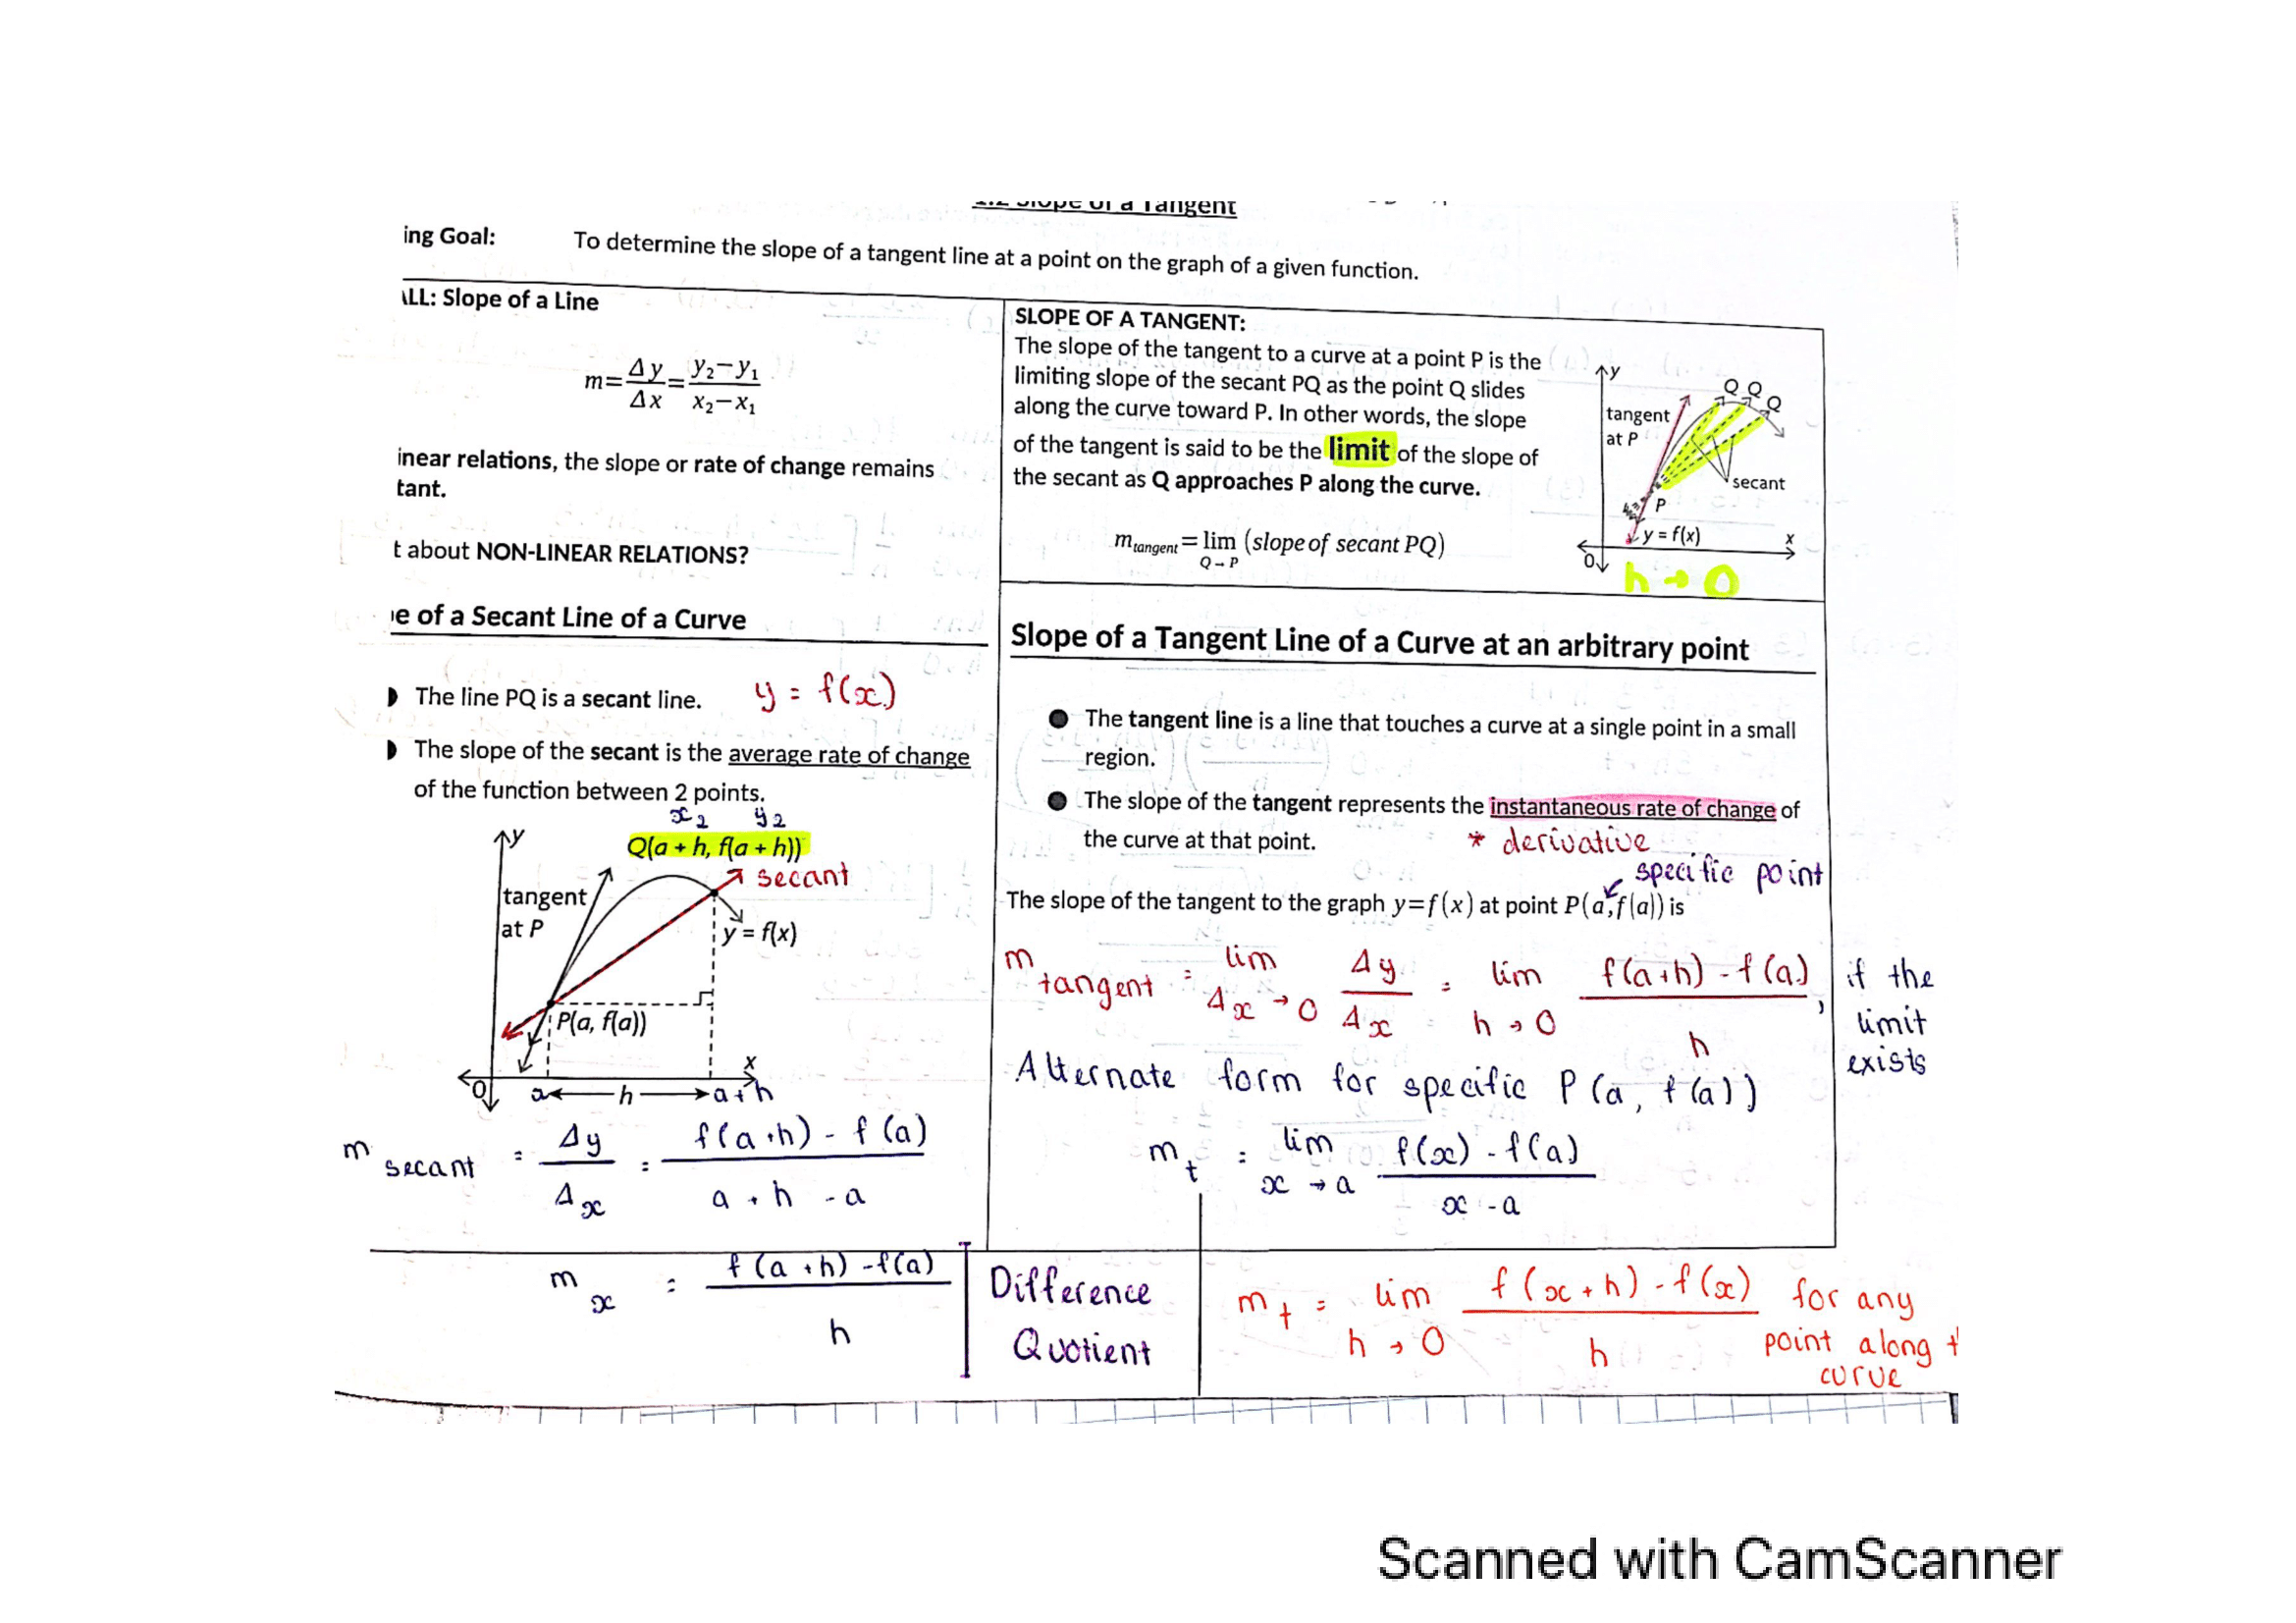 1.2 Slope of a Tangent
ing Goal: To determine the slope of a tangent line at a point on the graph of a given function.
ALL: Slope of a Line
m=Δy/Δx=y₂−y₁/x₂−x₁
inear relations, the slope or rate of change remains
tant.
t about NON-LINEAR RELATIONS?
SLOPE OF A TANGENT:
The slope of the tangent to a curve at a point P is the
limiting slope of the secant PQ as the point Q slides
along the curve toward P. In other words, the slope
of the tangent is said to be the limit of the slope of
the secant as Q approaches P along the curve.
m tangent = lim (slope of secant PQ)
Q→P
y
Q Q Q
tangent
at P
secant
P
y = f(x)
x
0
h → 0
e of a Secant Line of a Curve
The line PQ is a secant line. y = f(x)
The slope of the secant is the average rate of change
of the function between 2 points.
x₂ y₂
y
Q(a + h, f(a + h))
secant
tangent
at P
y = f(x)
P(a, f(a))
x
0
a h a+h
m secant = Δy/Δx = f(a+h) - f(a)/a + h - a
m x = f(a+h) - f(a)/h
Difference
Quotient
Slope of a Tangent Line of a Curve at an arbitrary point
The tangent line is a line that touches a curve at a single point in a small
region.
The slope of the tangent represents the instantaneous rate of change of
the curve at that point. * derivative
specific point
The slope of the tangent to the graph y=f(x) at point P(a,f(a)) is
m tangent = lim Δx→0 Δy/Δx = lim h→0 f(a+h) - f(a)/h, if the
limit
exists
Alternate form for specific P(a, f(a))
m t = lim x→a f(x) - f(a)/x - a
m t = lim h→0 f(x+h) - f(x)/h for any
point along t
curve
Scanned with CamScanner